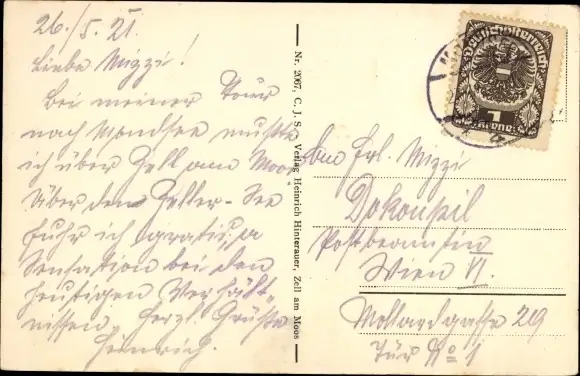 26./5. 21.
Liebe Mizzi!
Bei meiner Tour
nach Mondsee mußte
ich über Zell am Moos
Über den Zeller-See
fuhr ich gratis, a
Sensation bei den
heutigen Verhält-
nissen. Herzl. Grüße
Heinrich.
Nr. 2067, C. J. S., Verlag Heinrich Hinterauer, Zell am Moos
Deutschösterreich
1
Krone
An Frl. Mizzi
Dokoupil
Postbeamtin
Wien VI.
Mollardgasse 29
Tür No 1